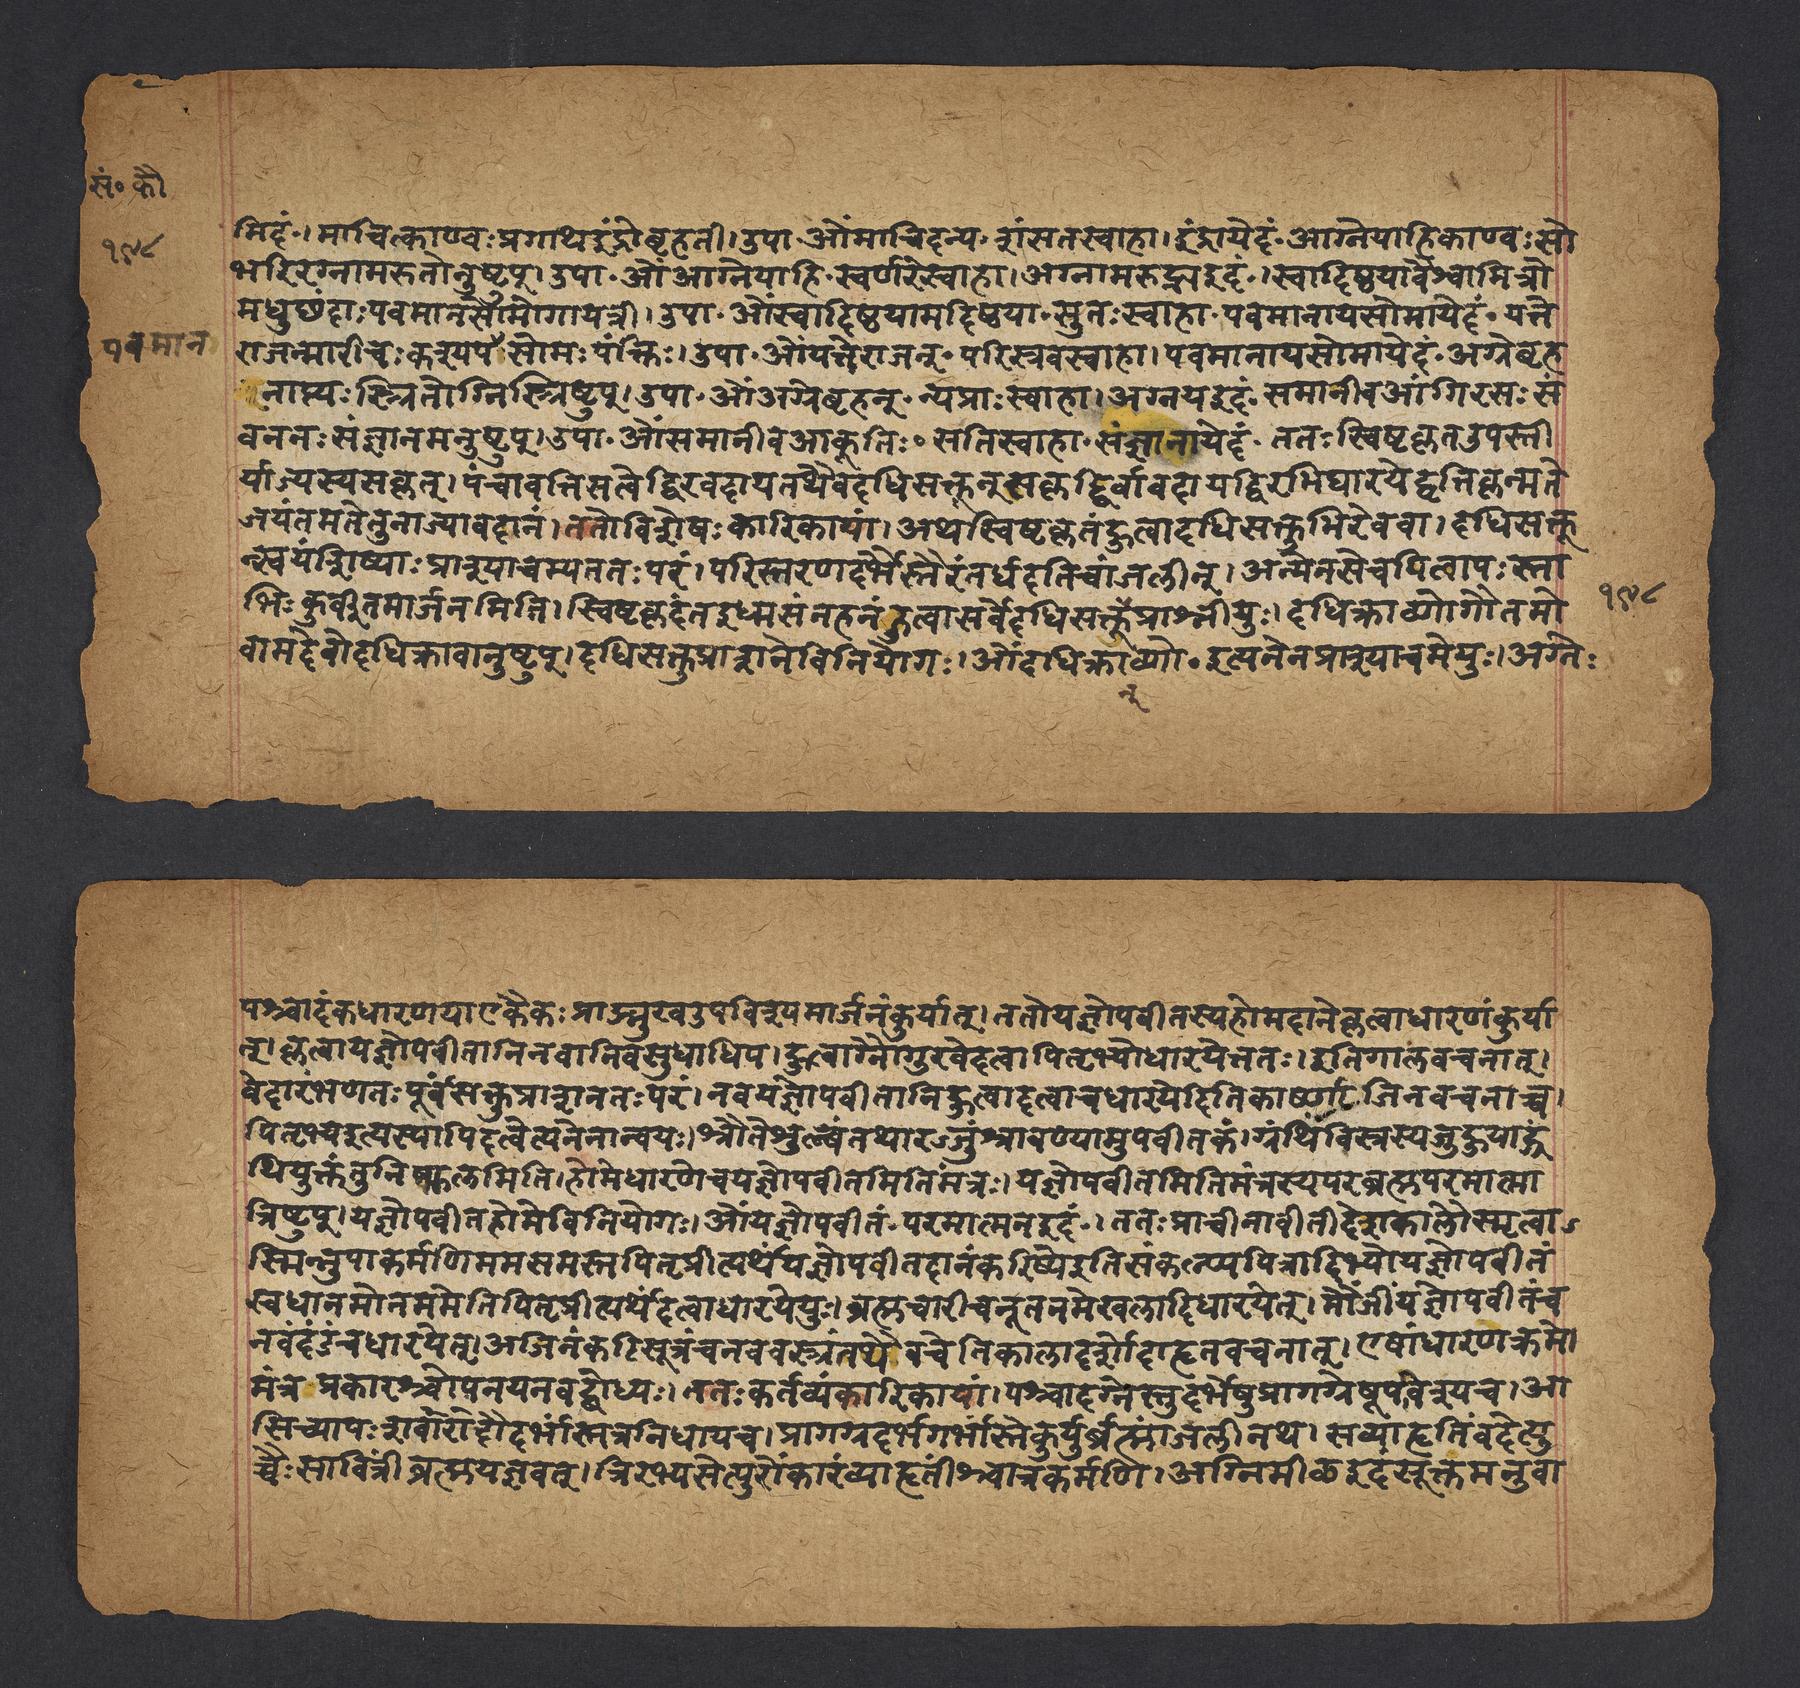 सं॰ कौ
१९८
पवमान
मिदं॰। माचित्काण्वः प्रगाथइंद्रोबृहती। उपा॰ ओंमाचिदन्य॰ शंसतस्वाहा। इंद्रायेदं॰ आग्नेयाहिकाण्वः सो
भरिरग्नामरुतोनुष्टुप्। उपा॰ ओंआग्नेयाहि॰ स्वर्णरेस्वाहा। अग्नामरुद्भ्यइदं॰। स्वादिष्ठयावैश्वामित्रो
मधुछंदाः पवमानसोमोगायत्री। उपा॰ ओंस्वादिष्ठयामदिष्ठया॰ सुतः स्वाहा॰ पवमानायसोमायेदं॰ यत्ते
राजन्मारीचः कश्यपः सोमः पंक्तिः। उपा॰ ओंयत्तेराजन्॰ परिस्त्रवस्वाहा। पवमानायसोमायेदं॰ अग्रेबृह
नाप्त्यः स्त्रितोग्निस्त्रिष्टुप्। उपा॰ ओंअग्रेबृहन्॰ न्यप्राः स्वाहा। अग्नयइदं॰ समानीवआंगिरसः सं
वननः संज्ञानमनुष्टुप्। उपा॰ ओंसमानीवआकूतिः॰ सतिस्वाहा॰ संज्ञानायेदं॰ ततः स्विष्टकृतउपस्ती
र्याज्यस्यसकृत्। पंचावत्तिसत्वेद्विरवदायतथैवदधिसक्तुन्सकृद्द्विर्वावदायद्विरभिघारयेद्वृत्तिकृन्मते
जयंतमतेतुनाज्यावदानं। ततोविशेषः कारिकायां। अथस्विष्टकृतंहुत्वादधिसक्तुभिरेववा। दधिसक्तू
न्स्वयंशिष्याः प्राश्याचम्यततः परं। परिस्तरणदर्भैस्तैरंतर्धदतिचांजलीन्। अन्येनसेचयित्वापः स्ना
भिः कुर्वीतमार्जनमिति। स्विष्टकृदंतइध्मसंनहनंहुत्वासर्वेदधिसक्तून्प्राश्नीयुः। दधिक्राव्णोगौतमो
वामदेवोदधिक्रावानुष्टुप्। दधिसक्तुप्राशनेविनियोगः। ओंदधिक्राव्णो॰ इत्यनेनप्राश्याचमेयुः। अग्नेः
न्
१९८
पश्चादंकधारणयाएकैकः प्राङ्मुखउपविश्यमार्जनंकुर्यात्। ततोयज्ञोपवीतस्यहोमदानेकृत्वाधारणंकुर्या
त्। कृत्वायज्ञोपवीतानिनवानिवसुधाधिप। हुत्वाग्नौगुरवेदत्वापितृभ्योधारयेत्ततः। इतिगालवचनात्।
वेदारंभणतः पूर्वंसक्तुप्राशनतः परं। नवयज्ञोपवीतानिहुत्वादत्वाचधारयेदितिकार्ष्णाजिनवचनाच्च।
पितृभ्यइत्यस्यापिदत्वेत्यनेनान्वयः। श्रौतेशुल्बंतथारज्जुंश्रावण्यामुपवीतकं। ग्रंथिंविस्त्रस्यजुहुयाद्ग्रं
थियुक्तंतुनिष्फलमिति। होमेधारणेचयज्ञोपवीतमितिमंत्रः। यज्ञोपवीतमितिमंत्रस्यपरब्रह्मपरमात्मा
त्रिष्टुप्। यज्ञोपवीतहोमेविनियोगः। ओंयज्ञोपवीतं॰ परमात्मनइदं॰। ततः प्राचीनावीतीदेशकालौस्मृत्वाऽ
स्मिन्नुपाकर्मणिममसमस्तपितृप्रीत्यर्थंयज्ञोपवीतदानंकरिष्येइतिसंकल्प्यपित्रादिभ्योयज्ञोपवीतं
स्वधानमोनममेतिपितृप्रीत्यर्थंदत्वाधारयेयुः। ब्रह्मचारीचनूतनमेखलादिधारयेत्। मौंजींयज्ञोपवीतंच
नवंदंडंचधारयेत्। अजिनंकटिसूत्रंचनववस्त्रंतथैवचेतिकालादर्शोदाहृतवचनात्। एषांधारणक्रमो
मंत्रप्रकारश्चोपनयनवद्बोध्यः। ततः कर्तव्यंकारिकायां। पश्चादग्नेस्तुदर्भेषुप्रागग्रेषूपविश्यच। आ
सिच्यापः शरावेरोदौदर्भांस्तत्रनिधायच। प्रागग्रदर्भगर्भांस्तेकुर्युर्ब्रह्मांजलीनथ। सव्याहृतिंवदेत्यु
च्चैः सावित्रीब्रह्मयज्ञवत्। त्रिरभ्यसेत्पुरोंकारंव्याहृतीश्चात्रकर्मणि। अग्निमीळइदंसूक्तमनुवा